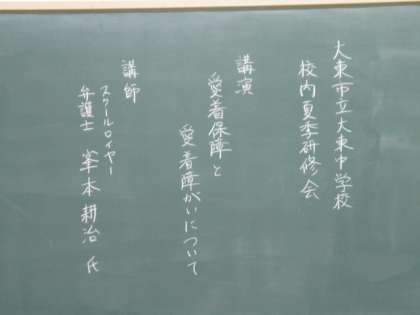 大東市立大東中学校
校内夏季研修会
講演
愛着保障と
愛着障がいについて
講師
スクールロイヤー
弁護士 峯本耕治 氏